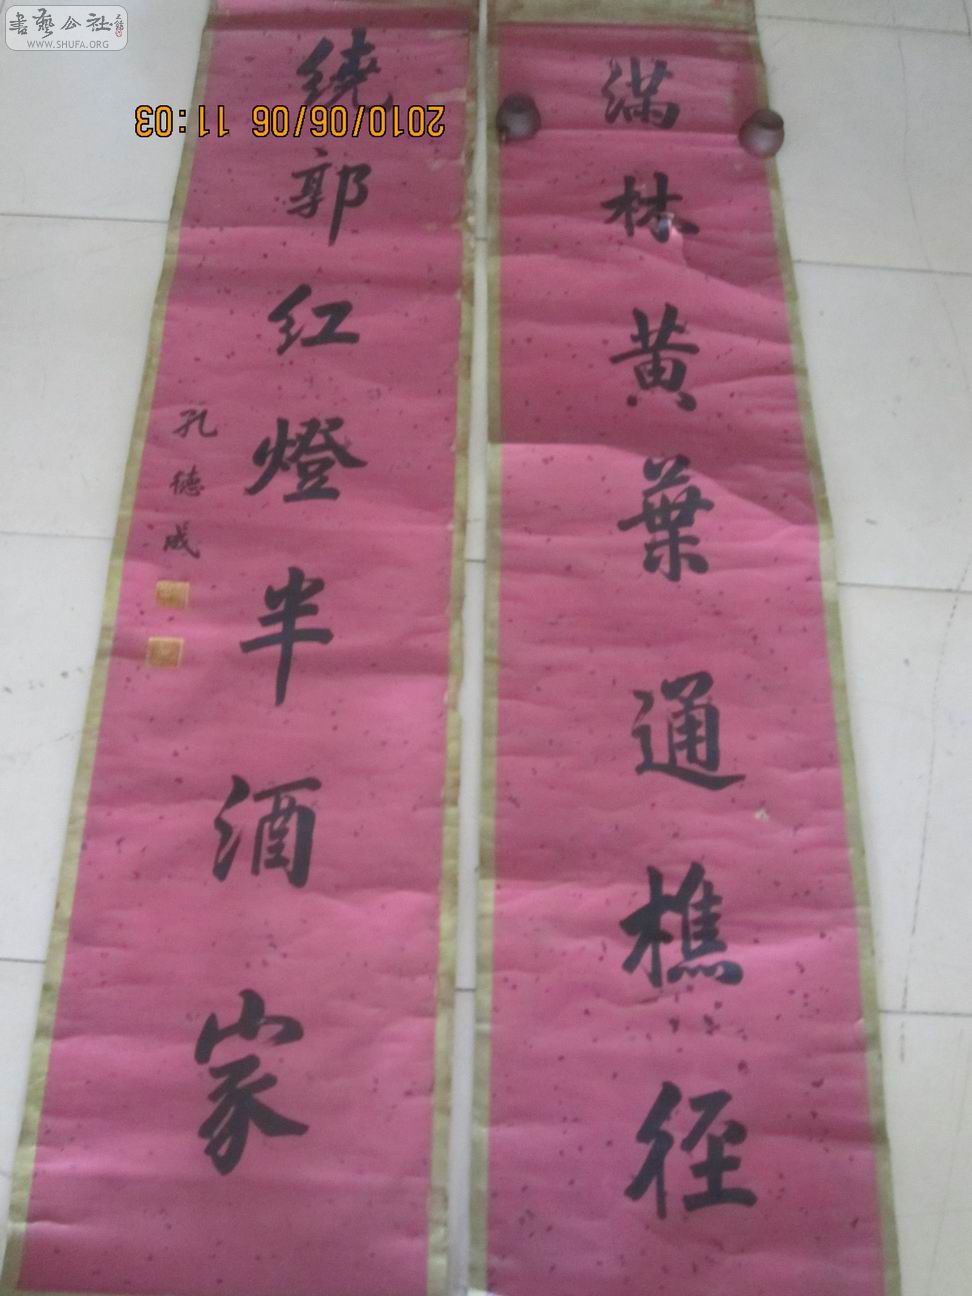 書藝公社
WWW.SHUFA.ORG
2010/06/06 11:03
滿林黃葉通樵径
繞郭紅燈半酒家
孔德成